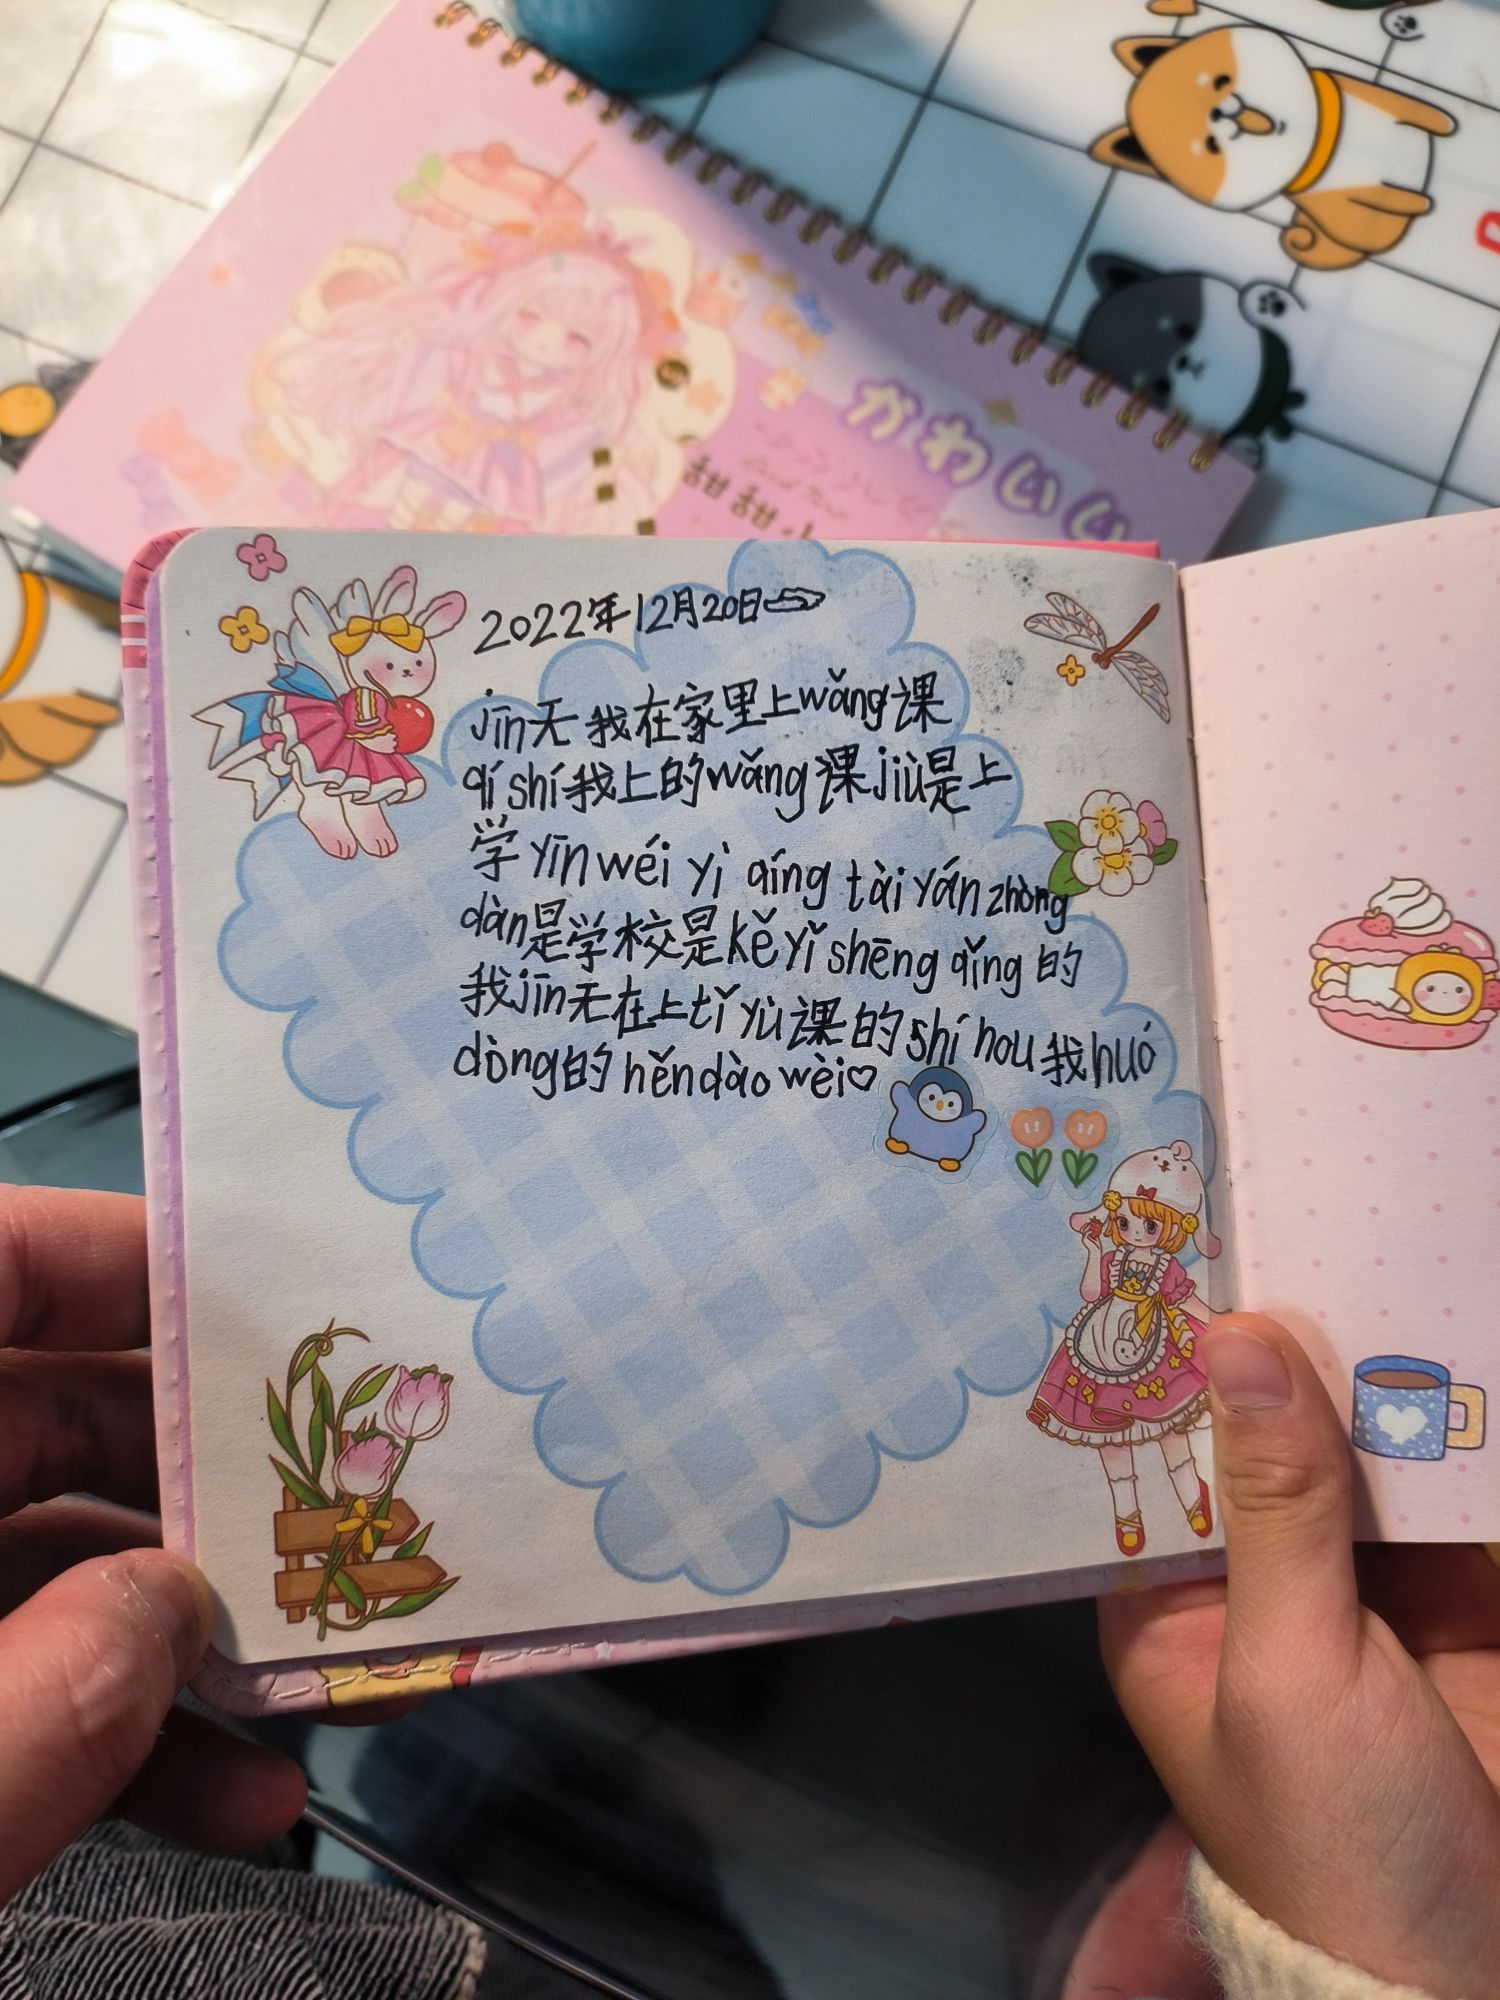 かわいい
甜甜
2022年12月20日
jīn天我在家里上wǎng课
qí shí我上的wǎng课jiù是上
学yīn wéi yì qíng tài yán zhòng
dàn是学校是kě yǐ shēng qǐng的
我jīn天在上tǐ yù课的shí hou我huó
dòng的hěn dào wèi♡